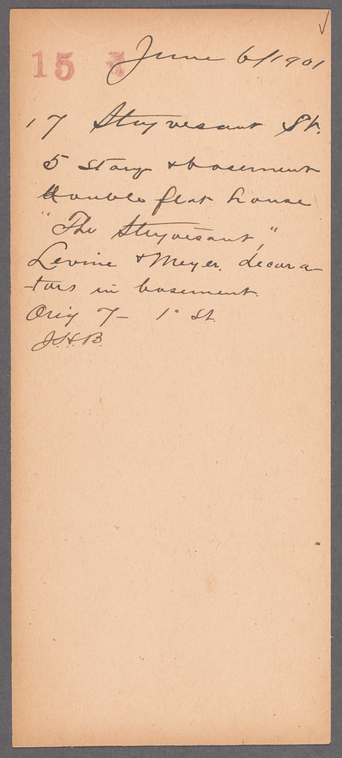 15 June 6/1901
17 Stuyvesant St.
5 story & basement
double flat house
"The Stuyvesant,"
Levine & Meyer. decora-
tors in basement.
Orig 7- 1º St.
J.H.B.